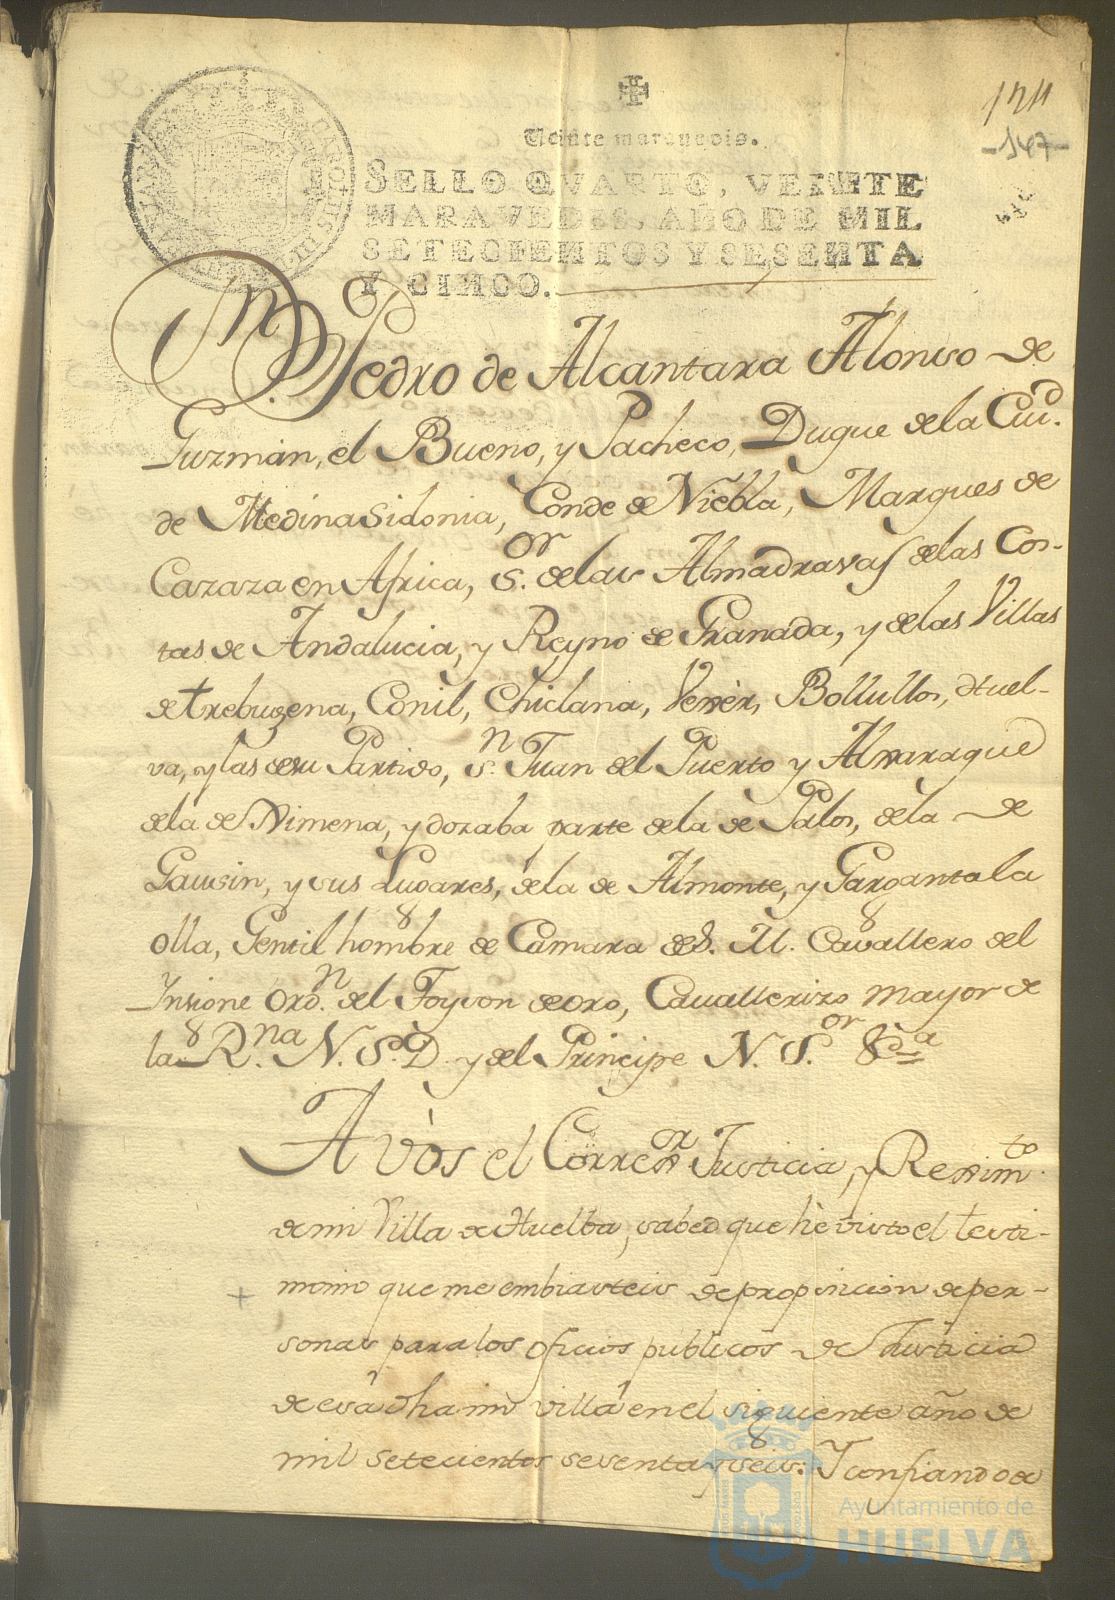 134
-147-
Veinte maravedis.
SELLO QVARTO, VEINTE
MARAVEDIS, AÑO DE MIL
SETECIENTOS Y SESENTA
Y CINCO.
Dn. Pedro de Alcantara Alonso de
Guzmàn, el Bueno, y Pacheco, Duque de la Ciud.
de Medina Sidonia, Conde de Niebla, Marques de
Cazaza en Africa, Sor. de las Almadravas de las Cos-
tas de Andalucia, y Reyno de Granada, y de las Villas
de trebugena, Conil, Chiclana, Vexèr, Bollullos, Huel-
va, y las de su Partido, Sn. Juan del Puerto y Alxaraque
de la de Ximena, y dozaba parte de la de Palos, de la de
Gausin, y sus Lugares, de la de Almonte, y Garganta la
olla, Gentil hombre de Camara de S. M. Cavallero del
Insigne Ordn. del Toyson de oro, Cavallerizo mayor de
la Rna. N. Sa. y del Principe N. Sor. &a
A vòs el Correxr. Justicia, y Reximto.
de mi Villa de Huelba, sabed que hè visto el testi-
monio que me embiasteis de proposicion de per-
sonas para los oficios pùblicos de Justicia
de esa dha mi villa en el siguiente año de
mil setecientos sesenta y seis: Y confiando de
Ayuntamiento de
HUELVA